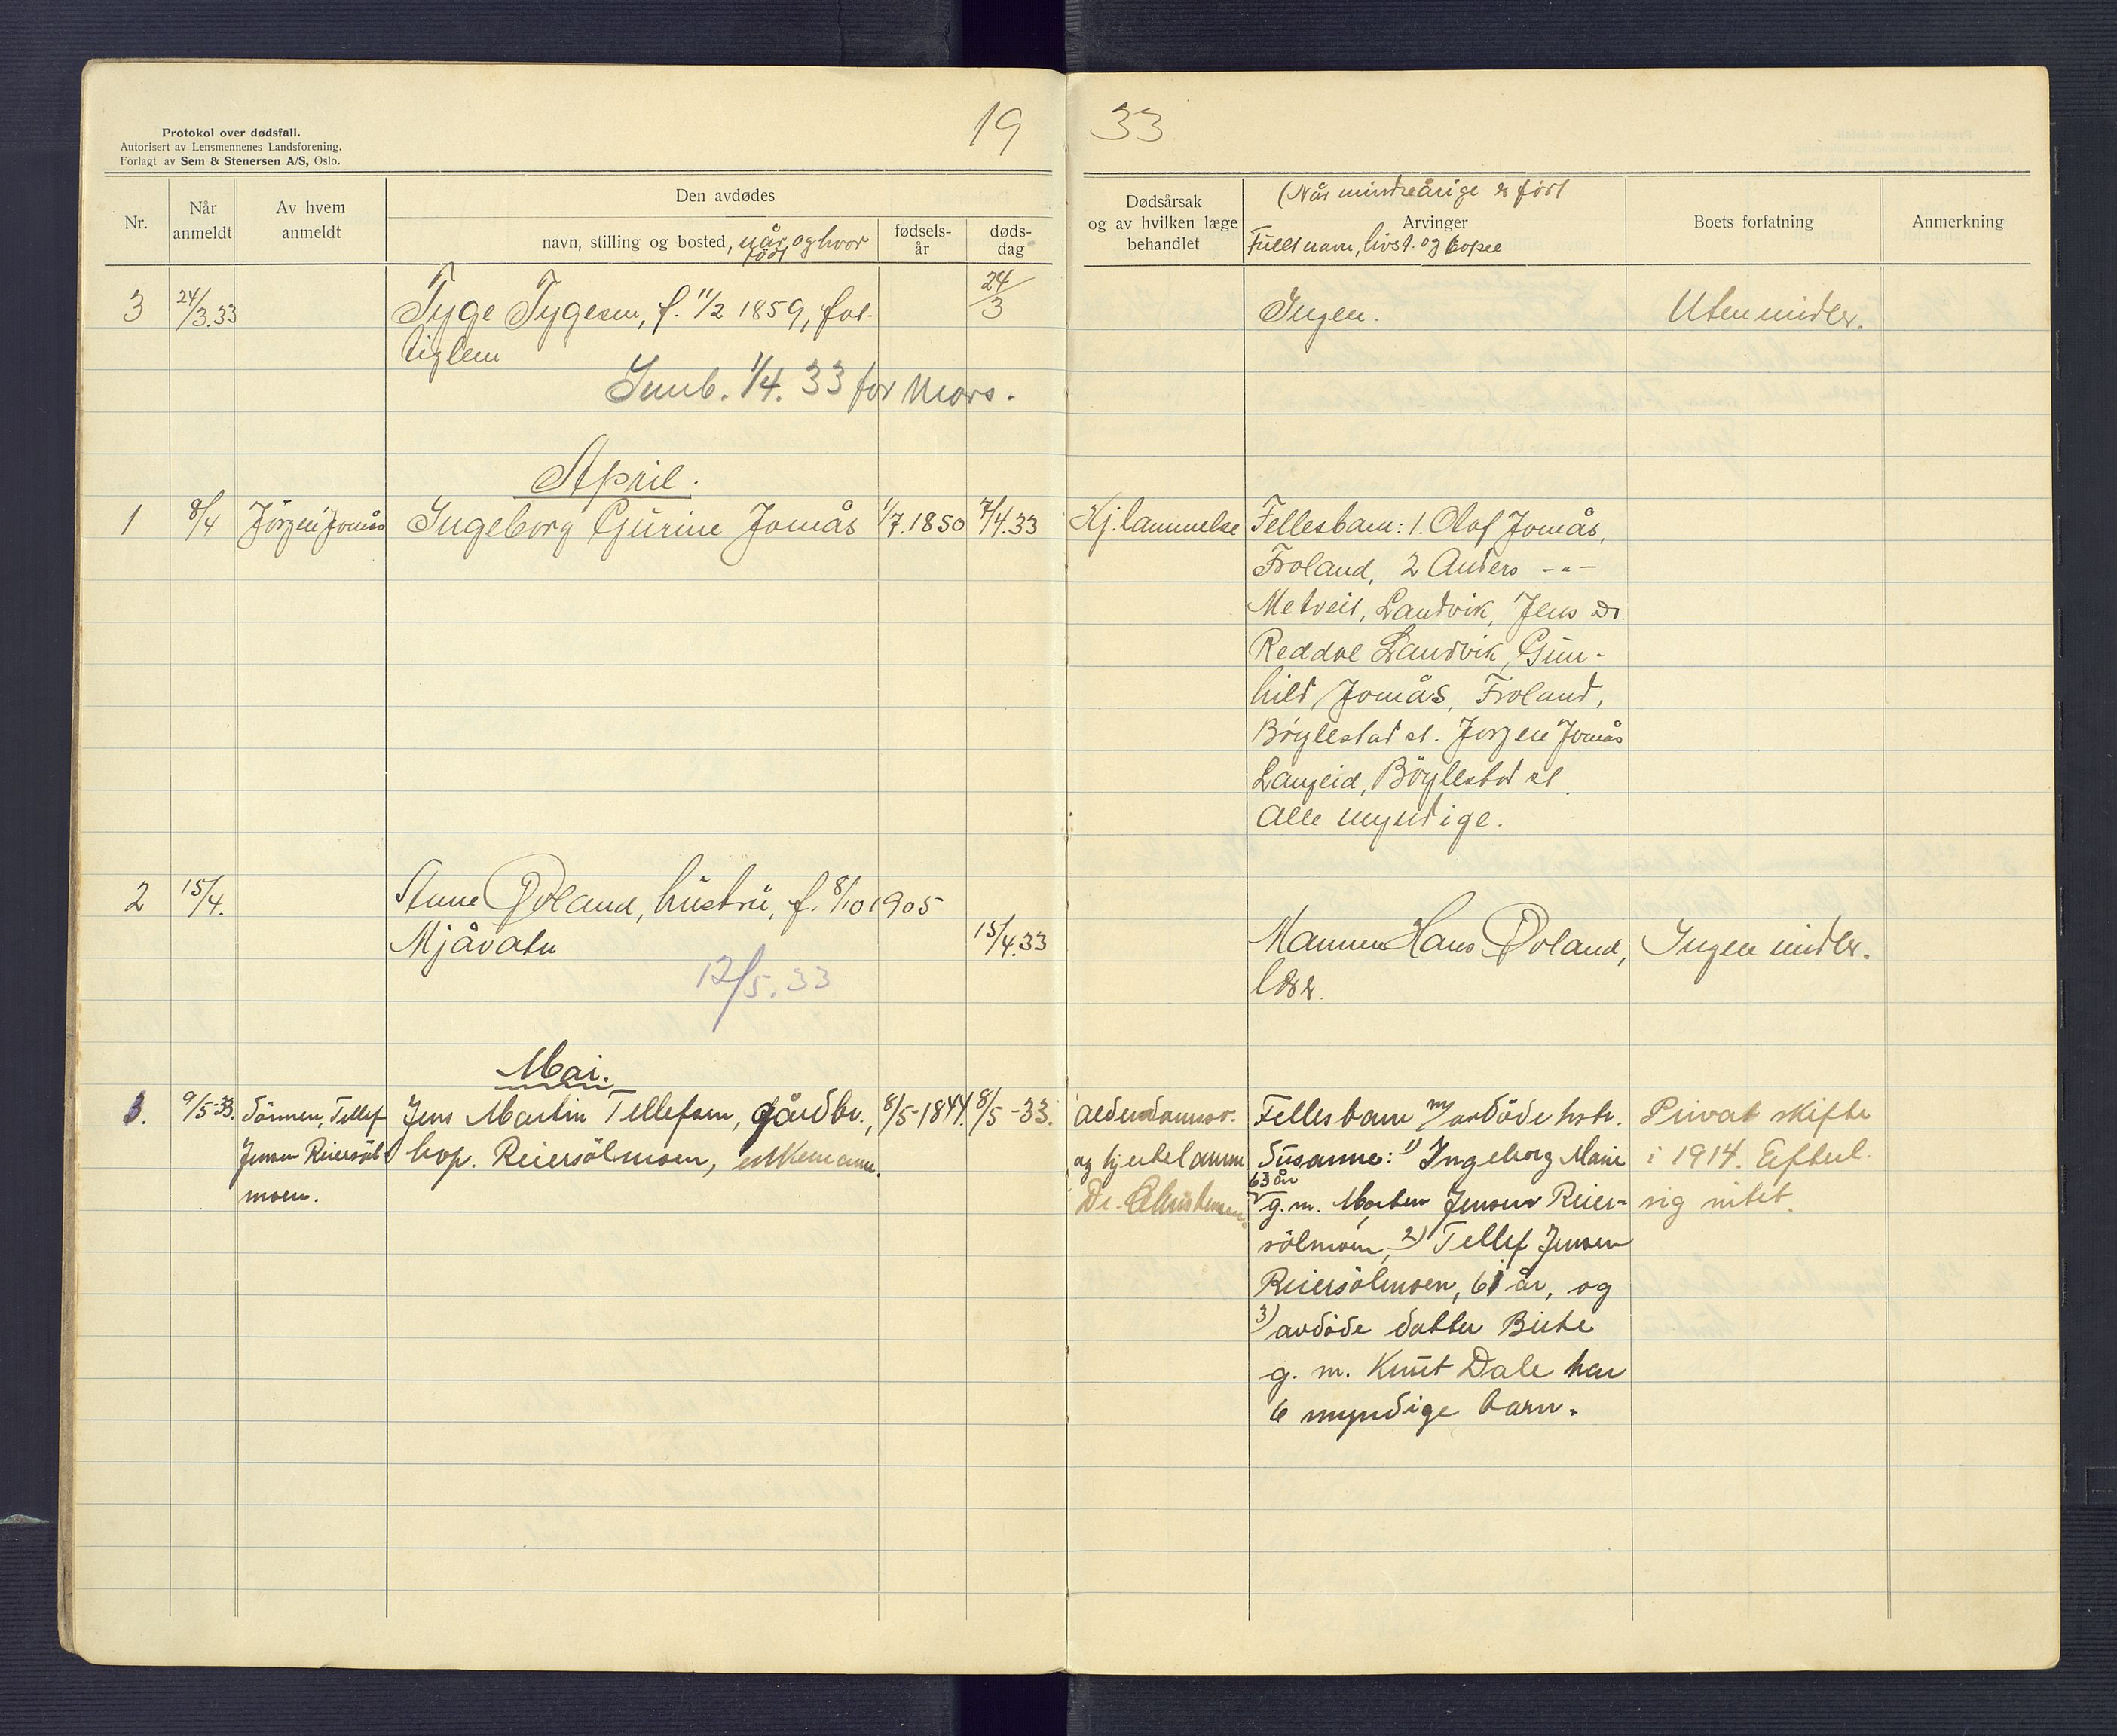 19 33
Protokol over dødsfall.
Autorisert av Lensmennenes Landsforening.
Forlagt av Sem & Stenersen A/S, Oslo.
Nr.
Når
anmeldt
Av hvem
anmeldt
Den avdødes
navn, stilling og bosted, når og hvor
født
fødsels-
år
døds-
dag
Dødsårsak
og av hvilken læge
behandlet
(Når mindreårige er født
Arvinger
Fullt navn, livsst. og bopel
Boets forfatning
Anmerkning
3 24/3.33 Tyge Tygesen, f. 11/2 1859, fat- 24/3 Ingen. Uten midler.
tiglem
Innb. 1/4. 33 for Mars.
April.
1 8/4 Jörgen Jomås Ingeborg Gurine Jomås 1/7.1850 7/4.33 Hj. lammelse Fellesbarn: 1. Olaf Jomås,
Froland, 2 Anders -"-
Metveit, Landvik, Jens Do.
Reddal Landvik, Gun-
hild Jomås, Froland,
Böylestad st. Jorgen Jomås
Langeid, Böylestad st.
Alle myndige.
2 15/4. Anne Öoland, hustru, f. 8/10 1905
Mjåvatn 15/4.33 Mannen Hans Öoland, Ingen midler.
12/5.33
Mai.
1. 9/5-33. Sönnen, Tellef Jens Martin Tellefsen, gårdbr., 8/5-1844. 8/5-33. Alderdomssv. Fellesbarn m/ avdöde hstr. Privat skifte
Jensen Reiersöl- bop. Reiersölmoen, enkemann. og hjertelamm. Susanne: 1) Ingeborg Marie i 1914. Efterl.
63 år
moen. Dr. Christensen. g.m. Morten Jensen Reier- sig intet.
sölmoen, 2) Tellef Jensen
Reiersölmoen, 61 år, og
3) avdöde datter Birte
g. m. Knut Dale har
6 myndige barn.